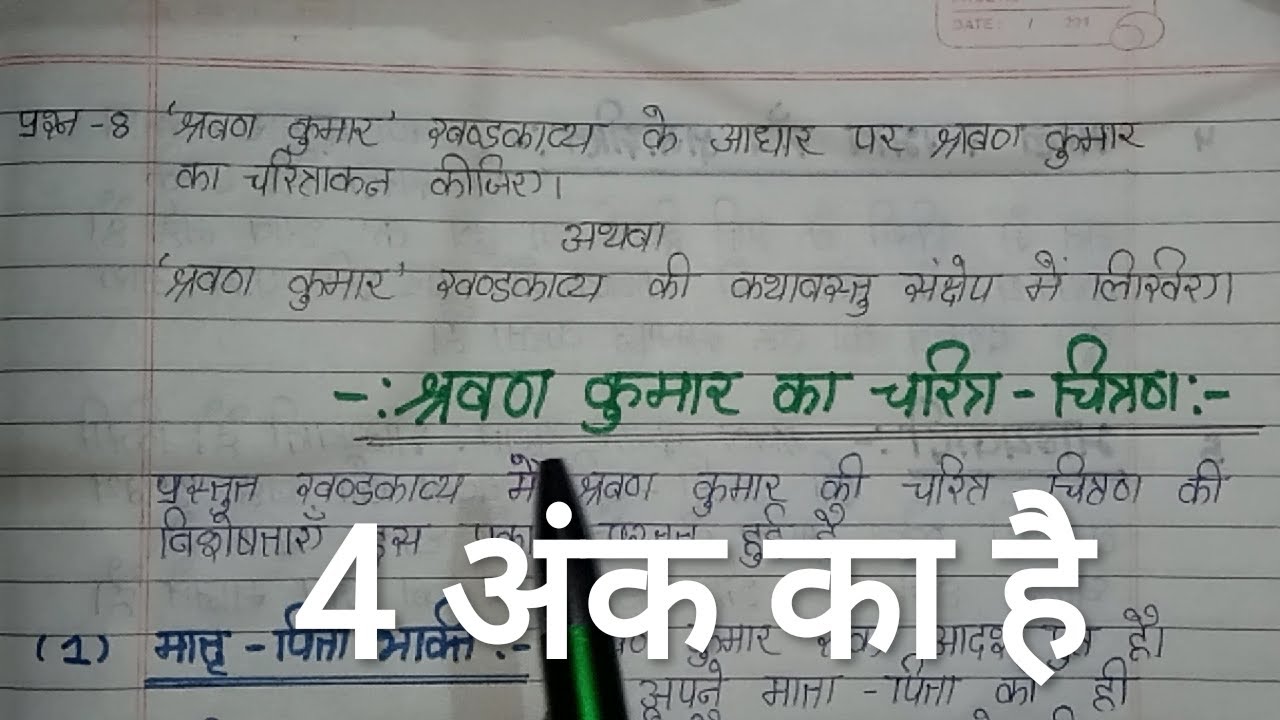 DATE: / 201
5
प्रश्न -8 'श्रवण कुमार' खण्डकाव्य के आधार पर श्रवण कुमार
का चरित्राकन कीजिए।
अथवा
'श्रवण कुमार' खण्डकाव्य की कथावस्तु संक्षेप में लिखिए।
-:श्रवण कुमार का चरित्र - चित्रण:-
प्रस्तुत खण्डकाव्य में श्रवण कुमार की चरित्र चित्रण की
विशेषताएँ इस हुई है
4 अंक का है
(1) मातृ - पिता भक्ति :- कुमार आदर्श है।
अपने माता - पिता को ही